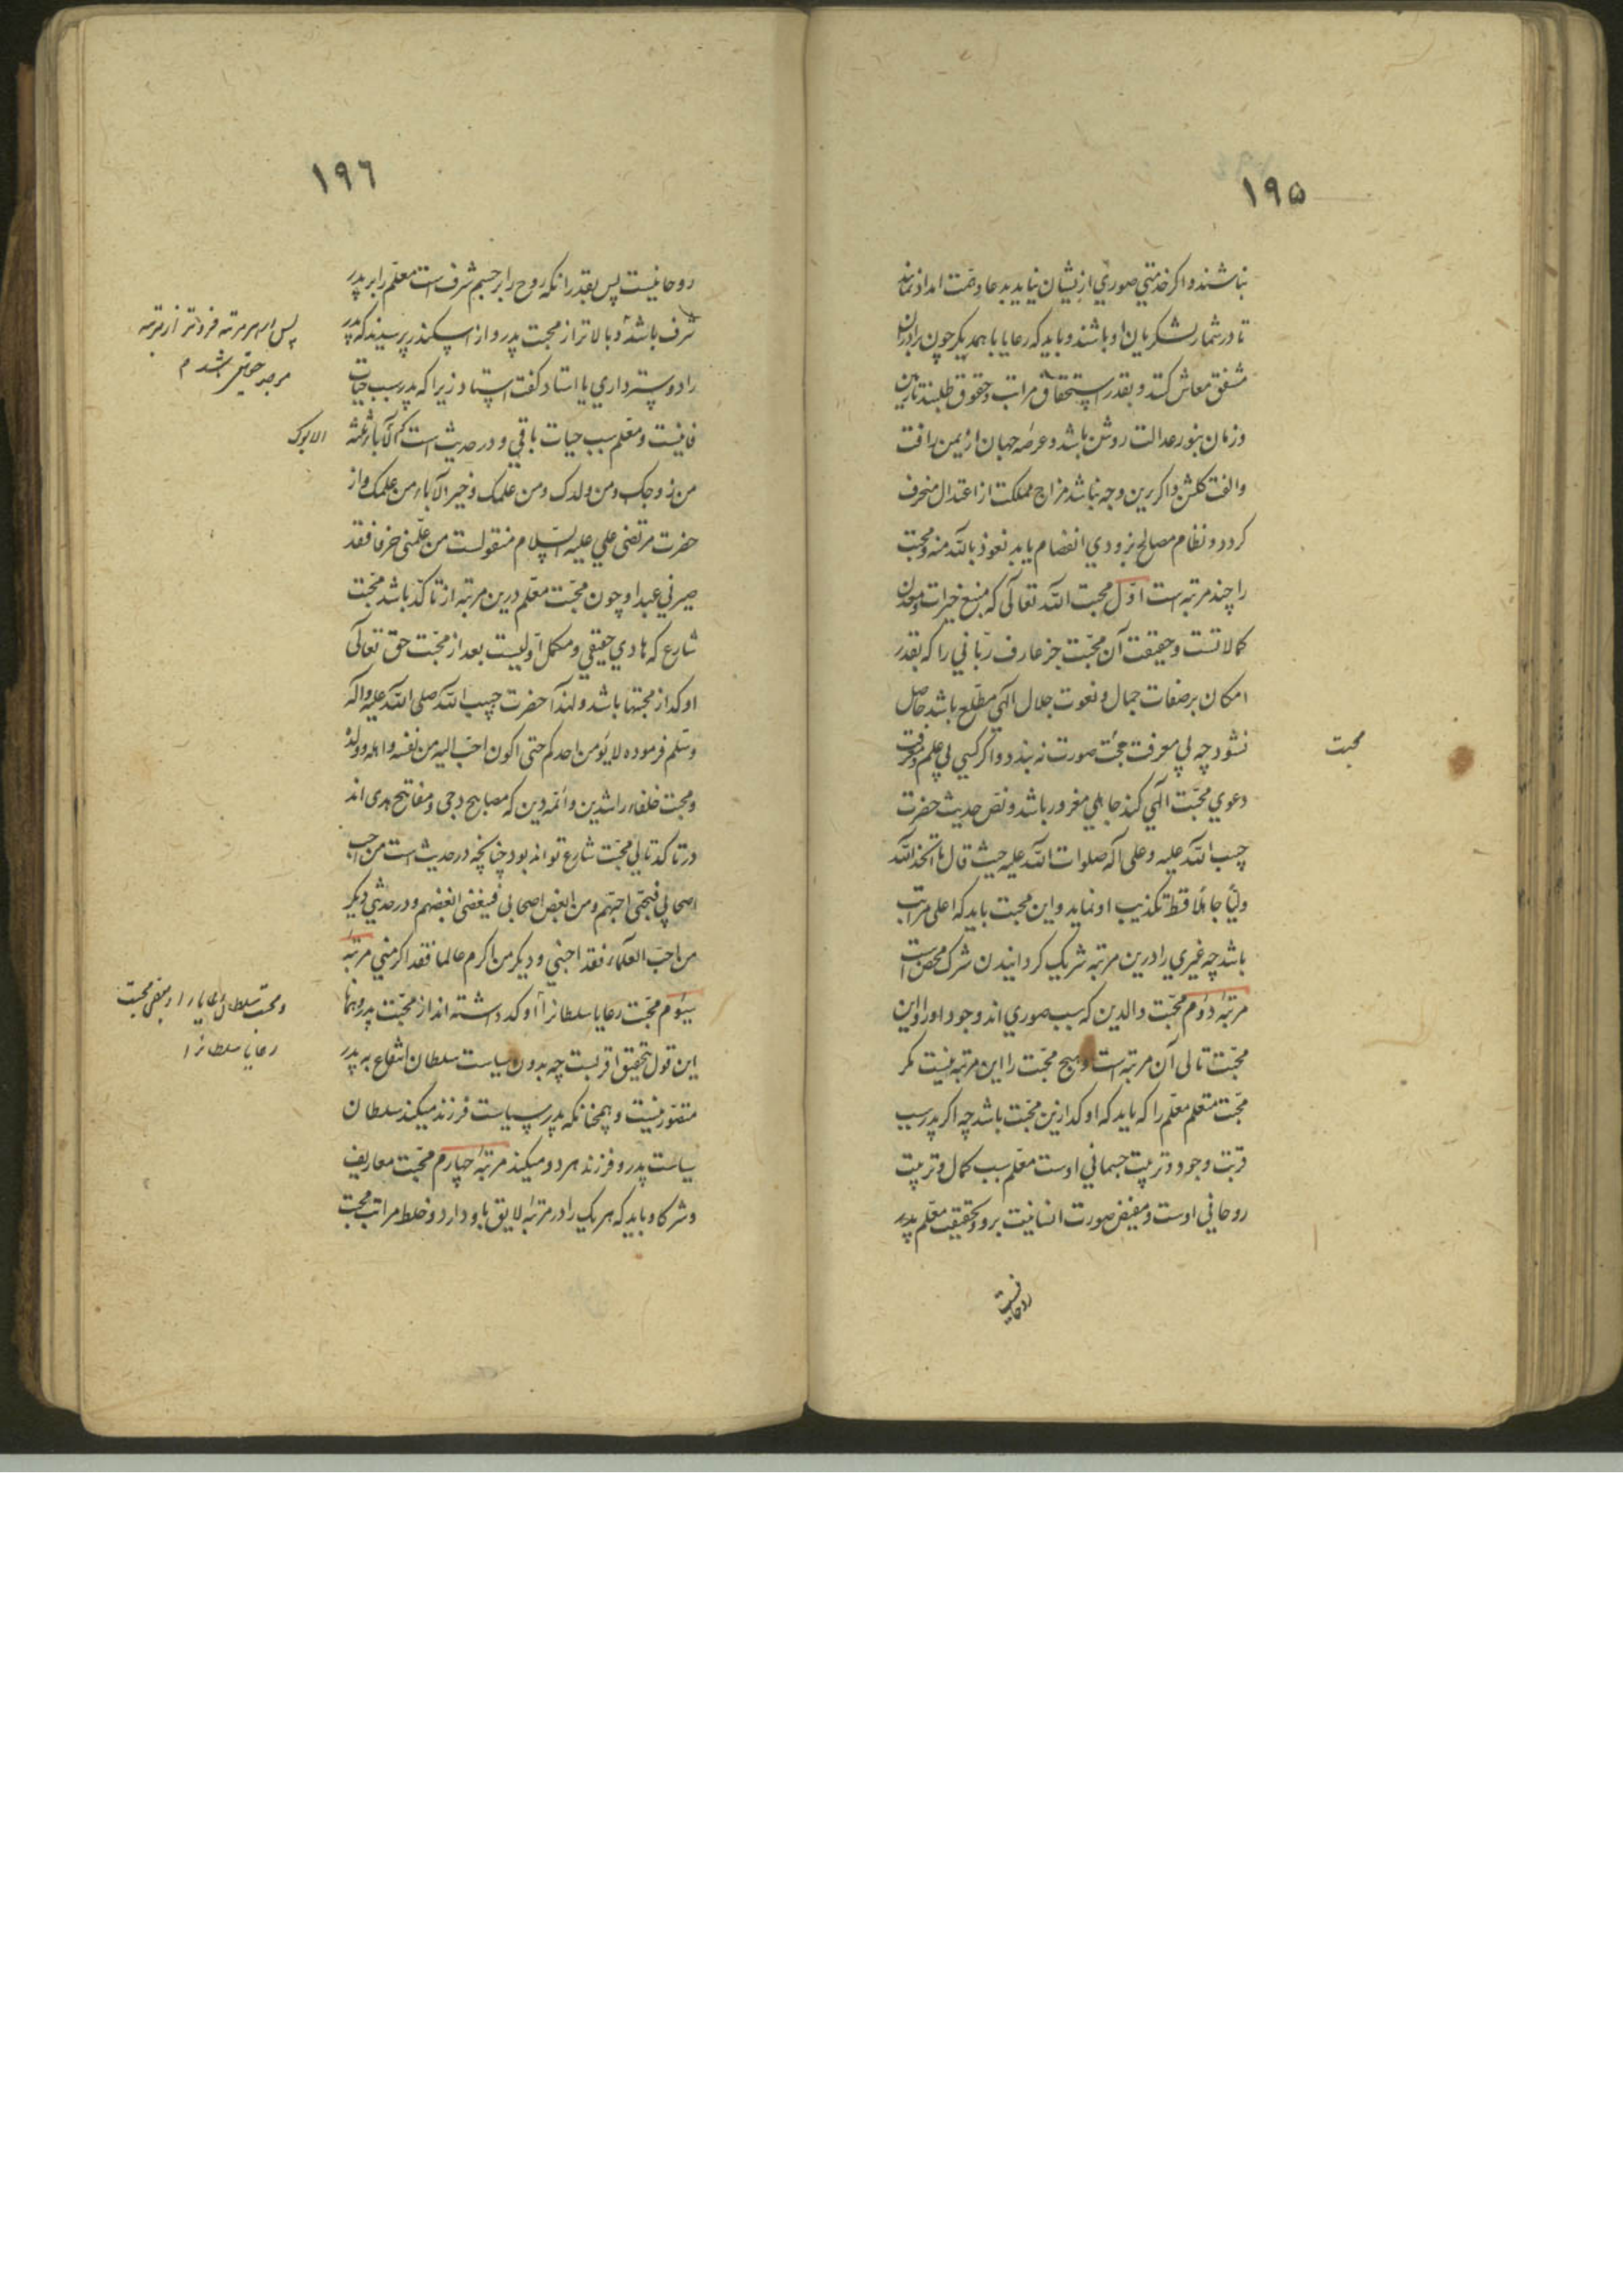 ۱۹۵
نباشند و اکر خدمتي صوري ازیشان نیاید بدعا و همّت امداد نمایند
تا در شمار لشکریان او باشند و باید که رعایا با همدیکر چون برادران
مشفق معاش کنند و بقدر استحقاق مراتب و حقوق طلبند تا زمین
و زمان بنور عدالت روشن باشد و عرصه جهان از یمن رافت
و الفت کلشن و اکر برین وجه نباشد مزاج مملکت از اعتدال منحرف
کردد و نظام مصالح بزودي انفصام یابد نعوذ بالله منه و محبت
را چند مرتبه است اوّل محبت الله تعالی که منبع خیرات و معدن
کمالاتست و حقیقت آن محبّت جز عارف ربّاني را که بقدر
امکان بر صفات جمال و نعوت جلال الهي مطّلع باشد حاصل
نشود چه بي معرفت محبّت صورت نه بندد و اکر کسي بي علم و معرفت
محبت
دعوي محبّت الهي کند جاهلي مغرور باشد و نصّ حدیث حضرت
حبیب الله علیه و علی آله صلوات الله علیه حیث قال ما اتخذ الله
ولیّا جاهلا قط تکذیب او نماید و این محبت باید که اعلی مراتب
باشد چه غیري را درین مرتبه شریک کردانیدن شرک محض است
مرتبهٔ دوم محبّت والدین که سبب صوري اند وجود او را و این
محبّت تالی آن مرتبه است و هیچ محبّت را این مرتبه نیست مکر
محبّت متعلم معلّم را که باید که اوکد ازین محبّت باشد چه اکر پدر سبب
قربت وجود و تربیت جسماني اوست معلّم سبب کمال و تربیت
روحاني اوست و مفیض صورت انسانیت برو و بحقیقت معلّم پدر
روحانیست
۱۹۶
روحانیست پس بقدر آنکه روح را بر جسم شرف است معلّم را بر پدر
شرف باشد و بالاتر از محبت پدر و از اسکندر پرسیدند که پدر
پس این مرتبه فروتر از مرتبه
موجد حقیقی باشد م
را دوستر داري یا استاد کفت استاد زیرا که پدر سبب حیات
فانیست و معلّم سبب حیات باقي و در حدیث است که الآباء ثلثه
ابوک
من زوجک و من ولدک و من علمک و خیر الآباء من علمک و از
حضرت مرتضی علي علیه السّلام منقولست من علّمنی حرفا فقد
صیرني عبدا و چون محبّت معلّم درین مرتبه از تاکّد باشد محبّت
شارع که هادي حقیقي و مکمل اوّلیست بعد از محبّت حق تعالی
اوکد از محبتها باشد و لهذا حضرت حبیب الله صلی الله علیه و آله
و سلّم فرموده لا یؤمن احدکم حتی اکون احبّ الیه من نفسه و اهله و ولده
و محبت خلفاء راشدین و ائمه دین که مصابیح دجی و مفاتیح هدی اند
در تاکد تالي محبّت شارع تواند بود چنانچه در حدیث است من احب
اصحابي فبحبّي احبّهم و من ابغض اصحابی فببغضی ابغضهم و در حدیثي دیکر
من احبّ العلماء فقد احبني و دیکر من اکرم عالما فقد اکرمني مرتبهٔ
سیوم محبّت رعایا سلطانرا و اوکد داشته اند از محبّت پدر و همانا
و محبت سلطان رعایا را و بعضی محبت
رعایا سلطانرا
این قول بتحقیق اقربست چه بدون سیاست سلطان انتفاع به پدر
متصوّر نیست و همچنانکه پدر سیاست فرزند میکند سلطان
سیاست پدر و فرزند هر دو میکند مرتبهٔ چهارم محبّت معارف
و شرکا و باید که هر یک را در مرتبهٔ لایق باو دارد و خلط مراتب محبت